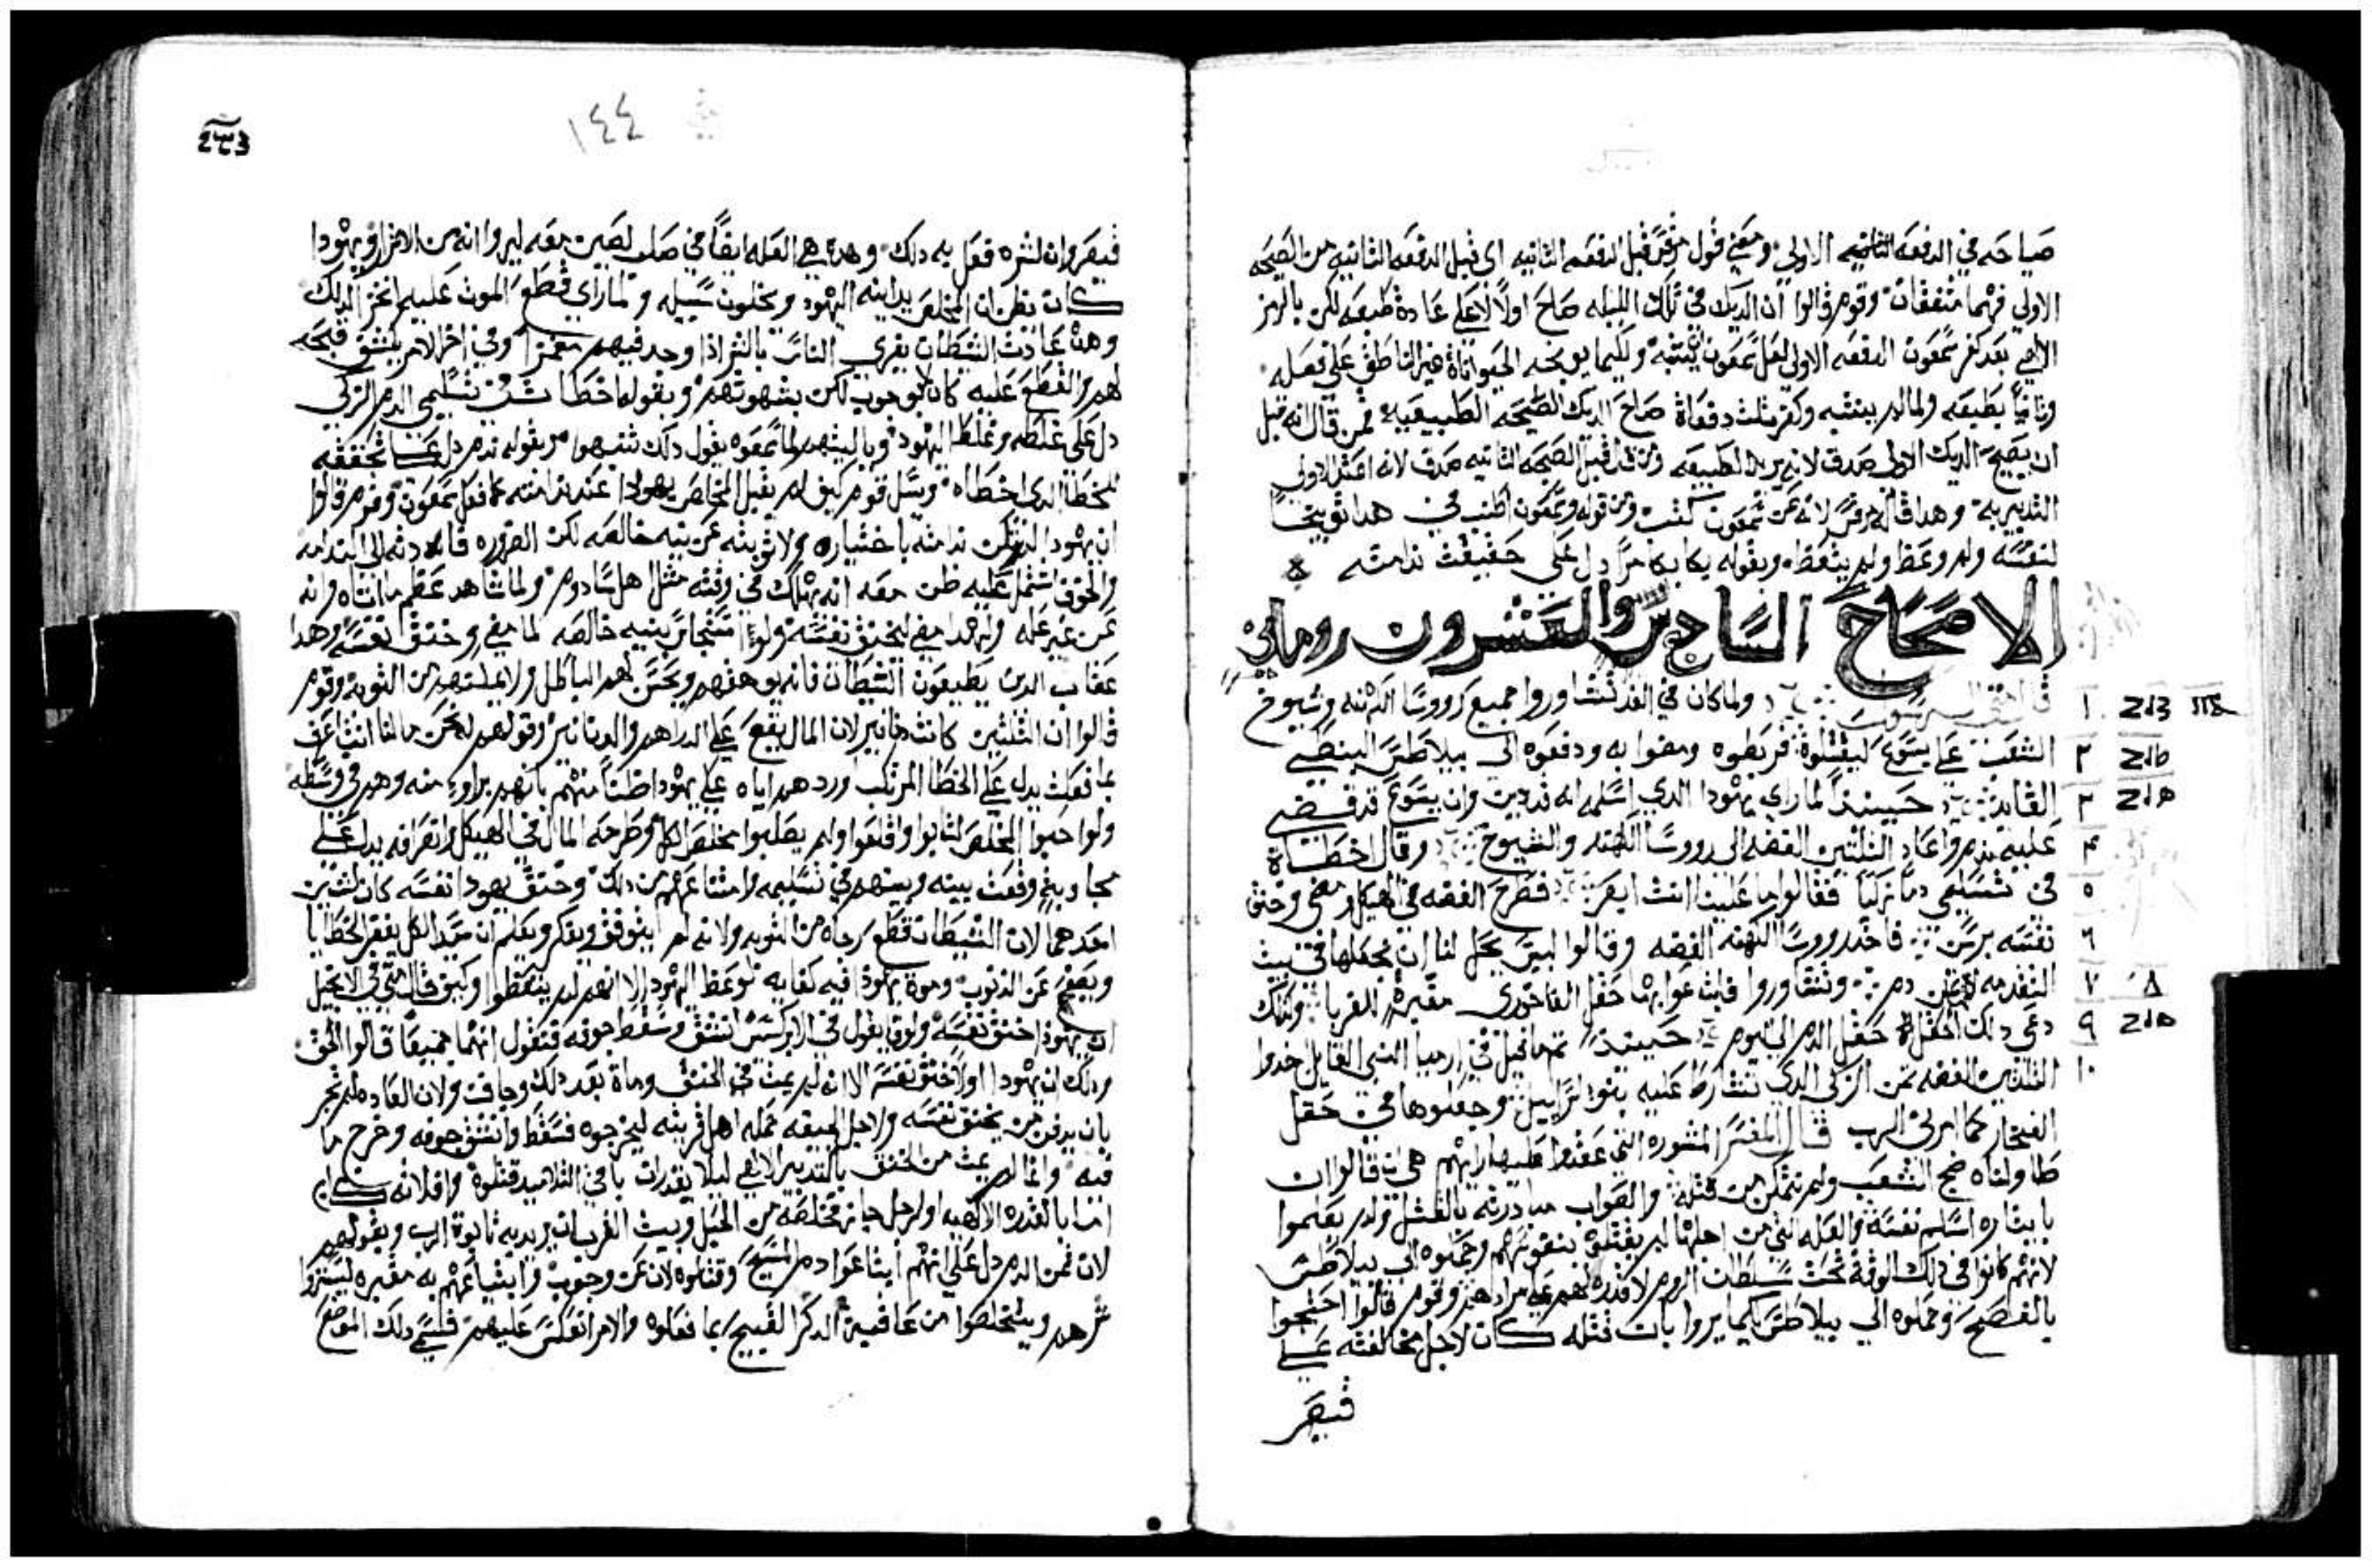 صياحه في الدفعه الثانيه الاولي ومعني قول مرقس قبل الدفعه الثانيه اي قبل الدفعه الثانيه من الصيحه
الاولي فهما متفقان وقوم قالوا ان الديك في تلك الليله صاح اولاً لا علي عادة طبعه لكن بالرمز
الالهي بعد كفر شمعون الدفعه الاولي لعل شمعون ينتبه ولكيما يوبخه الحيوان الغير الناطق علي فعله
وثانياً بطبعه ولما لم ينتبه وكفر ثلث دفعاة صاح الديك الصيحه الطبيعيه فمن قال انه قبل
ان يصيح الديك الاولي صدق لانه يريد الطبيعه ومن قال قبل الصيحه الثانيه صدق لانه اضاف الاولي
التدبيريه وهدا قاله مرقس لانه عن شمعون كتب ومن قوله وشمعون اطنب في هدا توبيخاً
لنفسه ولم وعظ ولم يتعظ وبقوله بكا بكا مراً دل علي حقيقت ندامته
الاصحاح السادس والعشرون روماني
ولما كان في الغد تشاوروا جميع رووسا الكهنه وشيوخ
الشعب علي يسوع ليقتلوة فربطوه ومضوا به ودفعوه الي بيلاطس البنطي
القايد حينيذ لما راي يهودا الدي اسلمه انه قد دين وان يسوع قد قضي
عليه ندم واعاد الثلتين الفضه الي رووسا الكهنه والشيوخ وقال خطاة
في تسليمي دماً زكياً فقالوا ما علينا انت ابصر فطرح الفضه في الهيكل ومضي وخنق
نفسه فاخد رووسا الكهنه الفضه وقالوا ليس يحل لنا ان نجعلها في بيت
التقدمه لانها ثمن دم وتشاوروا فابتاعوا بها حقل الفاخوري مقبرة للغربا ولدلك
دعي دلك الحقل حقل الدم الي اليوم حينيذ تم ما قيل في ارميا النبي القايل خدوا
الثلتين الفضه ثمن الزكي الدي تشارط عليه بنو اسراييل وجعلوها في حقل
الفخار كما امرني الرب قال المفسر المشوره التي عقدوا عليها رايهم هي ان قالوا ان
طاولناه ضج الشعب ولم نتمكن من قتله والصواب مبادرته بالقتل ولم يعلموا
بايثاره اسلم نفسه والعله التي من اجلها لم يقتلوه بنفوسهم وحملوه الي بيلاطس
لانهم كانوا في دلك الوقت تحت سلطان الروم لا قدره لهم علي مرادهم وقوم قالوا احتجوا
بالفصح وحملوه الي بيلاطس كيما يروا بان قتله كان لاجل مخالفته علي
قيصر
١٤٤
قيصر وان لشره فعل به دلك وهده هي العله ايضاً في صلب لصين معه ليروا انه من الاشرار ويهودا
كان يظن ان المخلص يداينه اليهود ويخلون سبيله ولما راي قطع الموت عليه انخزل لدلك
وهده عادت الشيطان يغري الناس بالشر اذا وجد فيهم مغمزاً وفي اخر الامر يكشف قبحه
لهم والقطع عليه كان لا بوجوب لكن بشهوتهم وبقوله اخطات بتسليمي الدم الزكي
دل علي غلطه وغلط اليهود وياليتهم لما سمعوه يقول دلك تنبهوا وبقوله ندم دل علي تحققه
للخطا الدي اخطاه ويسل قوم كيف لم يقبل المخلص يهودا عند ندامته كما فعل بشمعون وقوم قالوا
ان يهودا لم تكن ندامته باختياره ولا توبته عن نيه خالصه لكن الضروره قادته الي الندامه
والخوف اشتمل عليه ظن معه انه يهلك في وقته مثل اهل سادوم ولما شاهد عظم ما اتاه وانه
عن غير عله ولهدا مضي ليخنق نفسه ولو استجار بنيه خالصه لما مضي وخنق نفسه وهدا
عقاب الدين يطيعون الشيطان فانه يوهمهم ويحسن لهم الباطل ولا يمكنهم من التوبه وقوم
قالوا ان الثلثين كانت دنانير لان المال يقع علي الدراهم والدنانير وقولهم له نحن ما لنا انت اعرف
بما فعلت يدل علي الخطا المرتكب ورد هم اياه علي يهودا ظناً منهم بانهم براوا منه وهم في وسطه
ولو احبوا المخلص لتابوا واقلعوا ولم يصلبوا مخلص الكل وطرحه المال في الهيكل وانصرافه يدل علي
مجاوبه وقعت بينه وبينهم في تسليمه وامتناعهم من دلك وخنق يهودا نفسه كان لشيين
احدهما لان الشيطان قطع رجاه من التوبه ولانه لم يتوقف ويفكر ويعلم ان سيد الكل يغفر الخطايا
ويصفح عن الدنوب وموة يهودا فيه كفايه لوعظ اليهود الا انهم لم يتعظوا وكيف قال متي في الانجيل
ان يهودا خنق نفسه ولوقا يقول في الابركسس انشق وسقط جوفه فنقول انهما جميعاً قالوا الحق
ودلك ان يهودا اولاً خنق نفسه الا انه لم يمت في الخنق وماة بعد دلك وجافت ولان العاده لم تجر
بان يدفن من يخنق نفسه ولاجل الجيفه حمله اهل قريته ليخرجوه فسقط وانشق جوفه وخرج ما
فيه وانما لم يمت من الخنق بالتدبير الالهي ليلا يقدرات باقي التلاميد قتلوة
اما بالقدره الالهيه او لرجل جا فخلصه من الحبل وبيت القربان يريد به تابوة الرب وبقولهم
لان ثمن الدم دل علي انهم ابتاعوا دم المسيح وقتلوه لا عن وجوب وابتياعهم به مقبره ليستروا
شرهم ويتخلصوا من عاقبة الدكر القبيح بما فعلوه والامر انعكس عليهم فسمي دلك الموضع